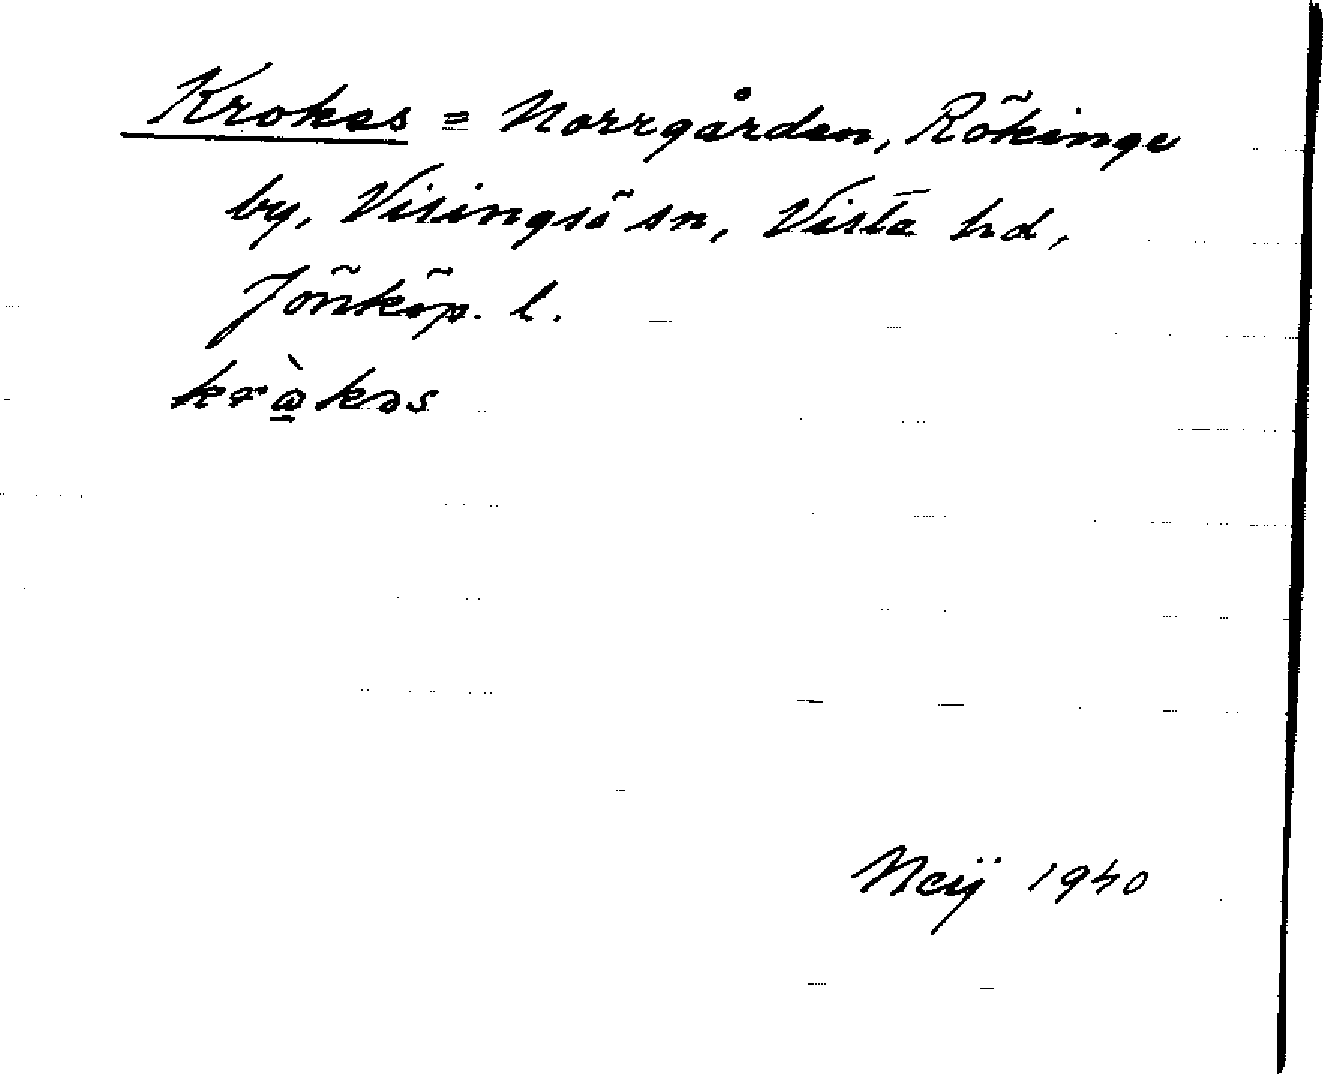 Krokes = Norrgården, Rökinge
by, Visingsö sn, Vista hd,
Jönköp. l.
krò̱kəs
Neij 1940